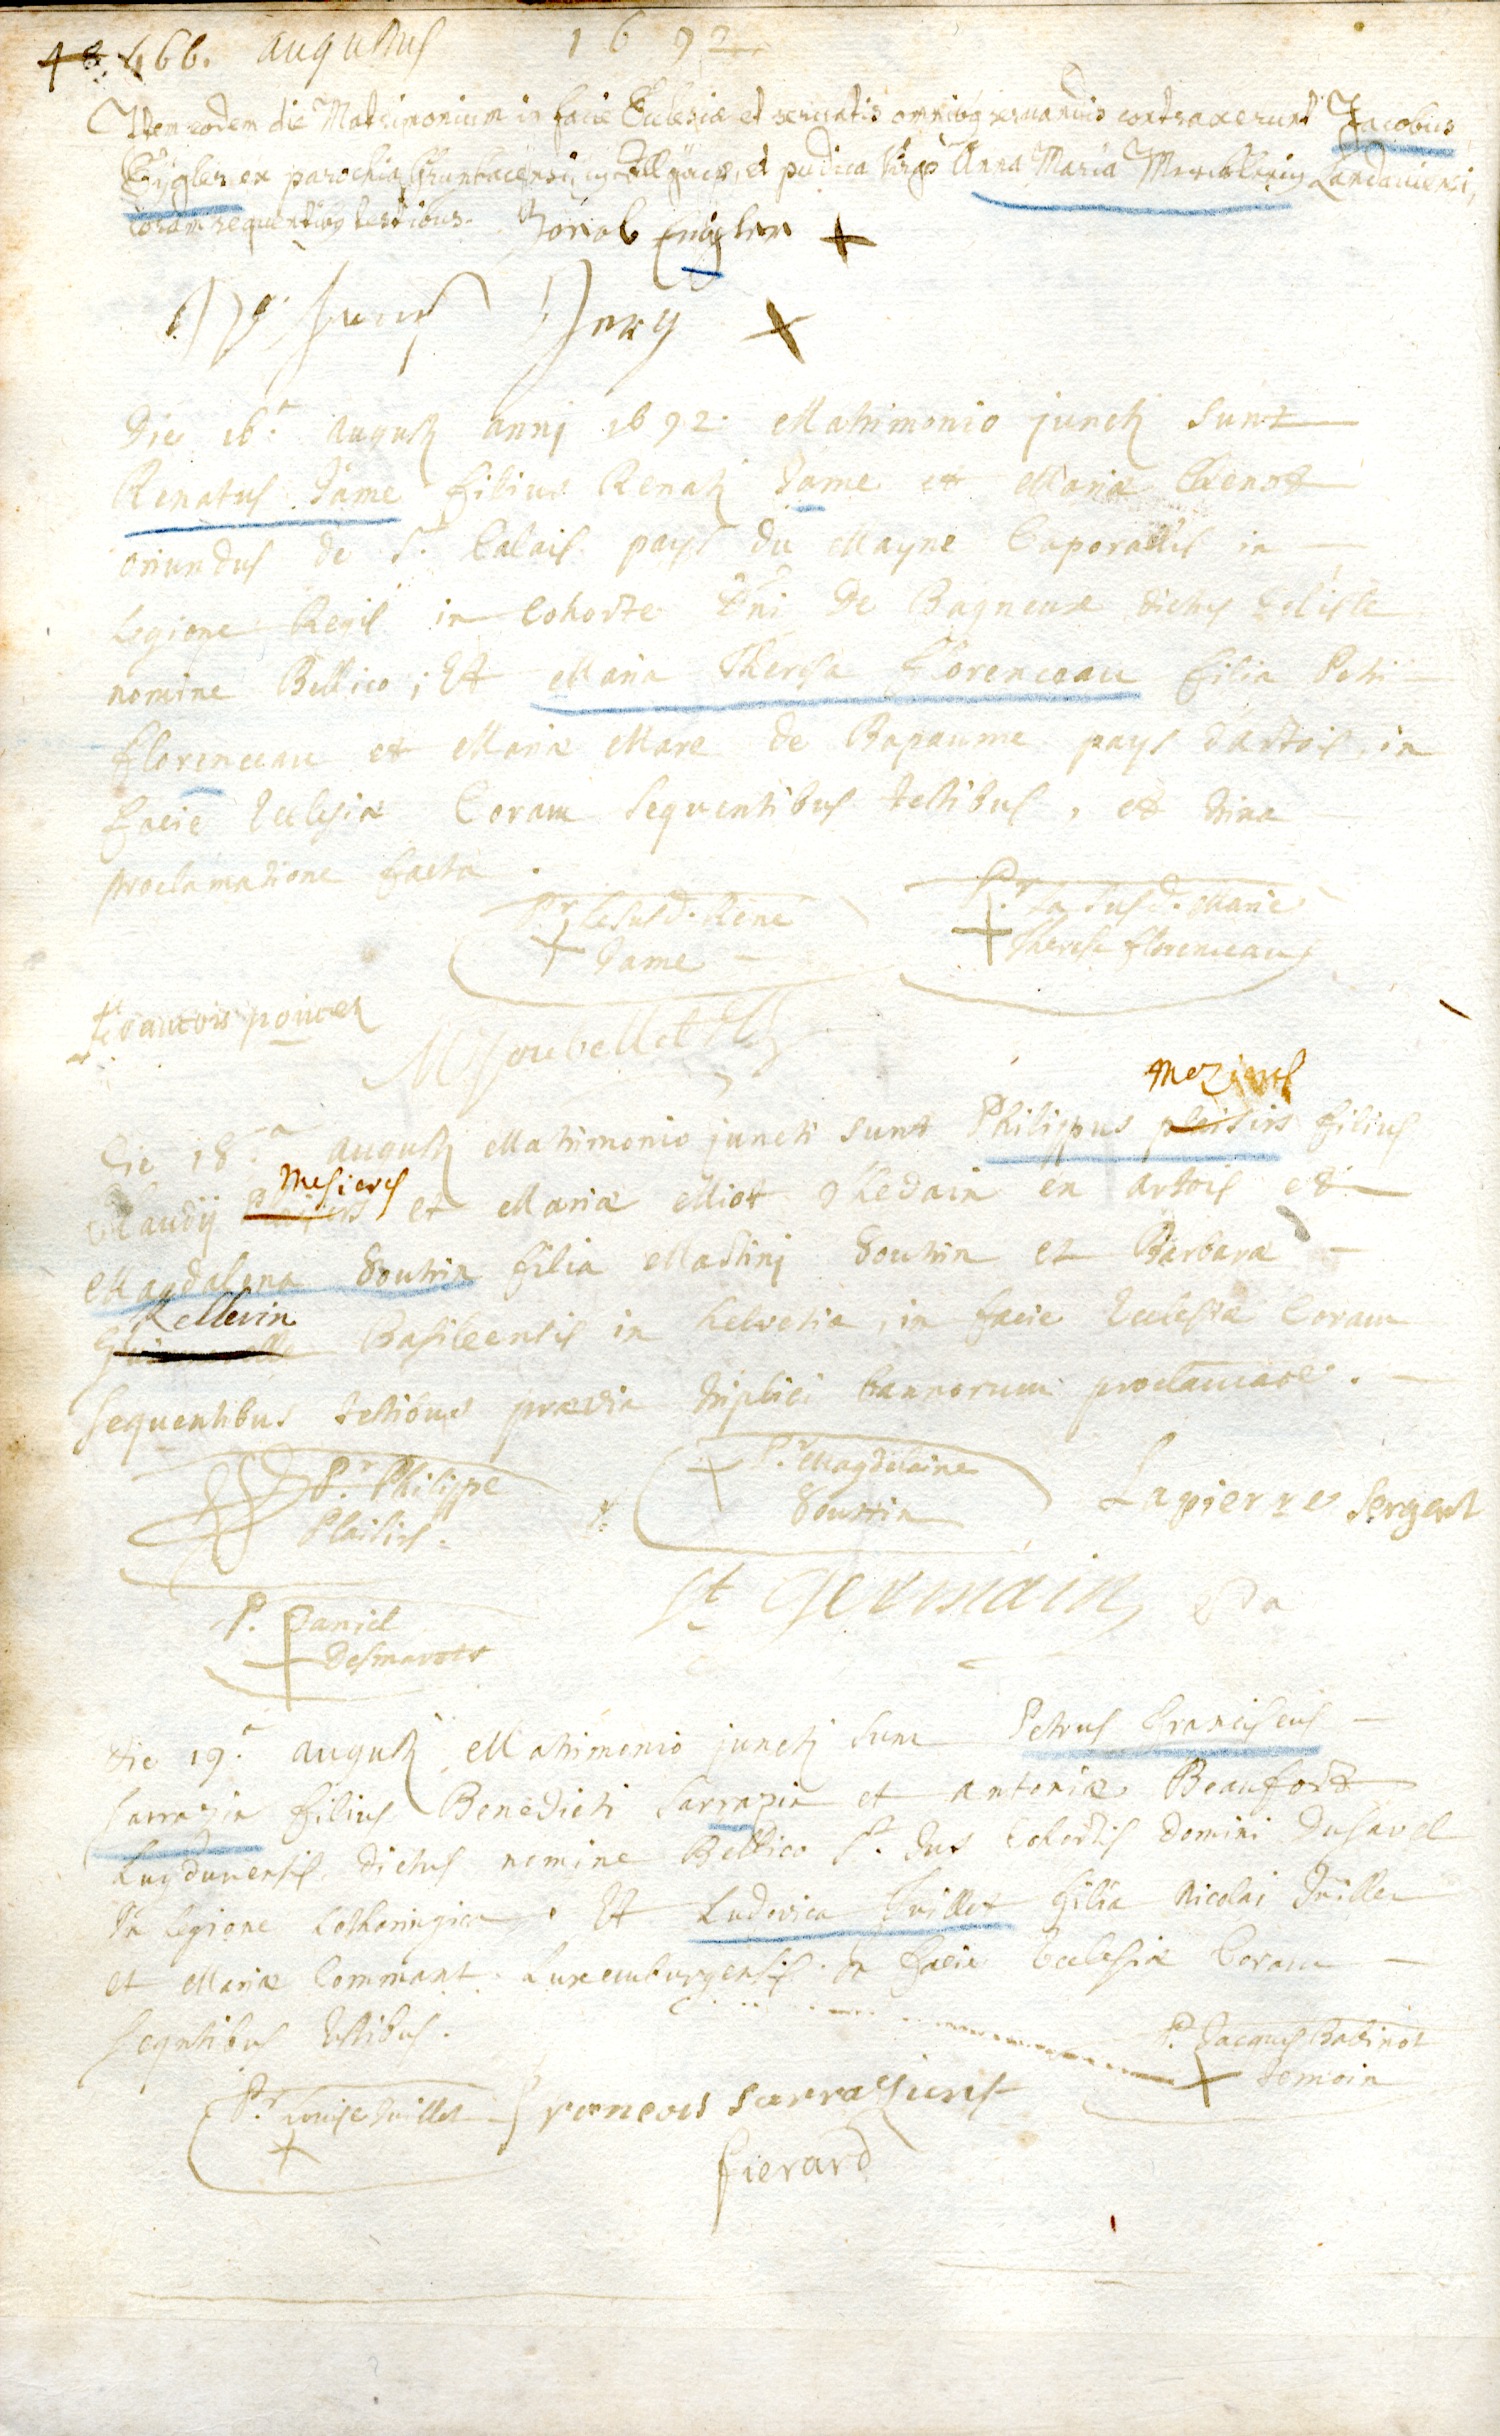 466. Augustus 1692
Item eodem die Matrimonium in facie Ecclesiæ et servatis omnibq servandis contraxerunt Jacobus
Eigler ex parochia et pudica Virgo Anna Maria Landaviensi,
coram sequentibq testibus. Jacob Eigler +
+
Die 16.ª Augusti anni 1692. Matrimonio juncti sunt
Renatus Dame filius Renati Dame et Maria
oriundus de St. Calais pays du Mayne Caporallis in
Legione Regis in Cohorte Dni De Bagneux dictus
nomine Bellico ; Et Maria Theresa Florenceau filia Petri
Florenceau et Mariæ Mare de Bapaume pays d'Artois, in
facie Ecclesiæ Coram sequentibus testibus, et trina
proclamatione facta.
Pr. le susd. René
+ Dame
Pr. la susd. Marie
+ Therese Florenceau
francois
Mezieres
Die 18.ª Augusti Matrimonio juncti sunt Philippus plaisirs filius
Mesieres
Claudij et Mariæ Miot Hedain en Artois et
Magdalena Soutrin filia Martini Soutrin et Barbara
Kellerin
Basileensis in Helvetia, in facie Ecclesiæ Coram
sequentibus testibus prævia triplici bannorum proclamaoe.
Pr. Philippe
Plaisirs.
+ Pr. Magdelaine
Soutrin
Lapierre Sergent
P. Daniel
+ Desmarots
St Germain
Die 19.ª Augusti Matrimonio juncti sunt Petrus Franciscus
Sarrazin filius Benedicti Sarrazin et Antoniæ Beaufort
Lugdunensis dictus nomine Bellico Cohortis Domini
In legione Lotharingica. Et Ludovica Tuillet filia Nicolai Tuillet
et Mariæ Commant. Luxemburgensis. In facie Ecclesiæ Coram
seqntibus testibus.
P. Jacques Babinot
+ temoin
Pr. Louise Tuillet
+
francois
fierard